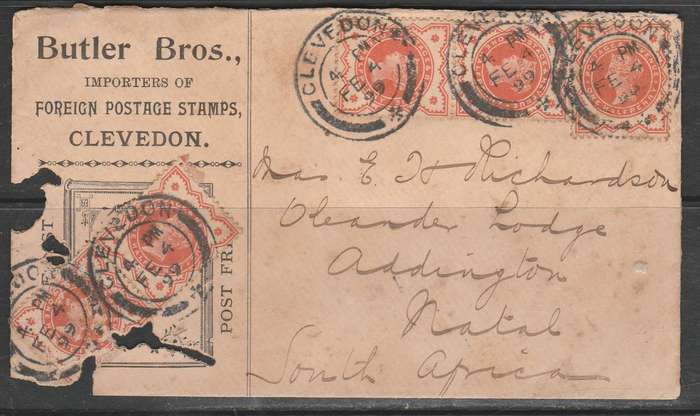 Butler Bros.,
IMPORTERS OF
FOREIGN POSTAGE STAMPS,
CLEVEDON.
CLEVEDON
4 PM
FE 4
99
CLEVEDON
4 PM
FE 4
99
CLEVEDON
4 PM
FE 4
99
Mrs E H Richardson
Oleander Lodge
Addington
Natal
South Africa
CLEVEDON
4 PM
FE 4
POST FR